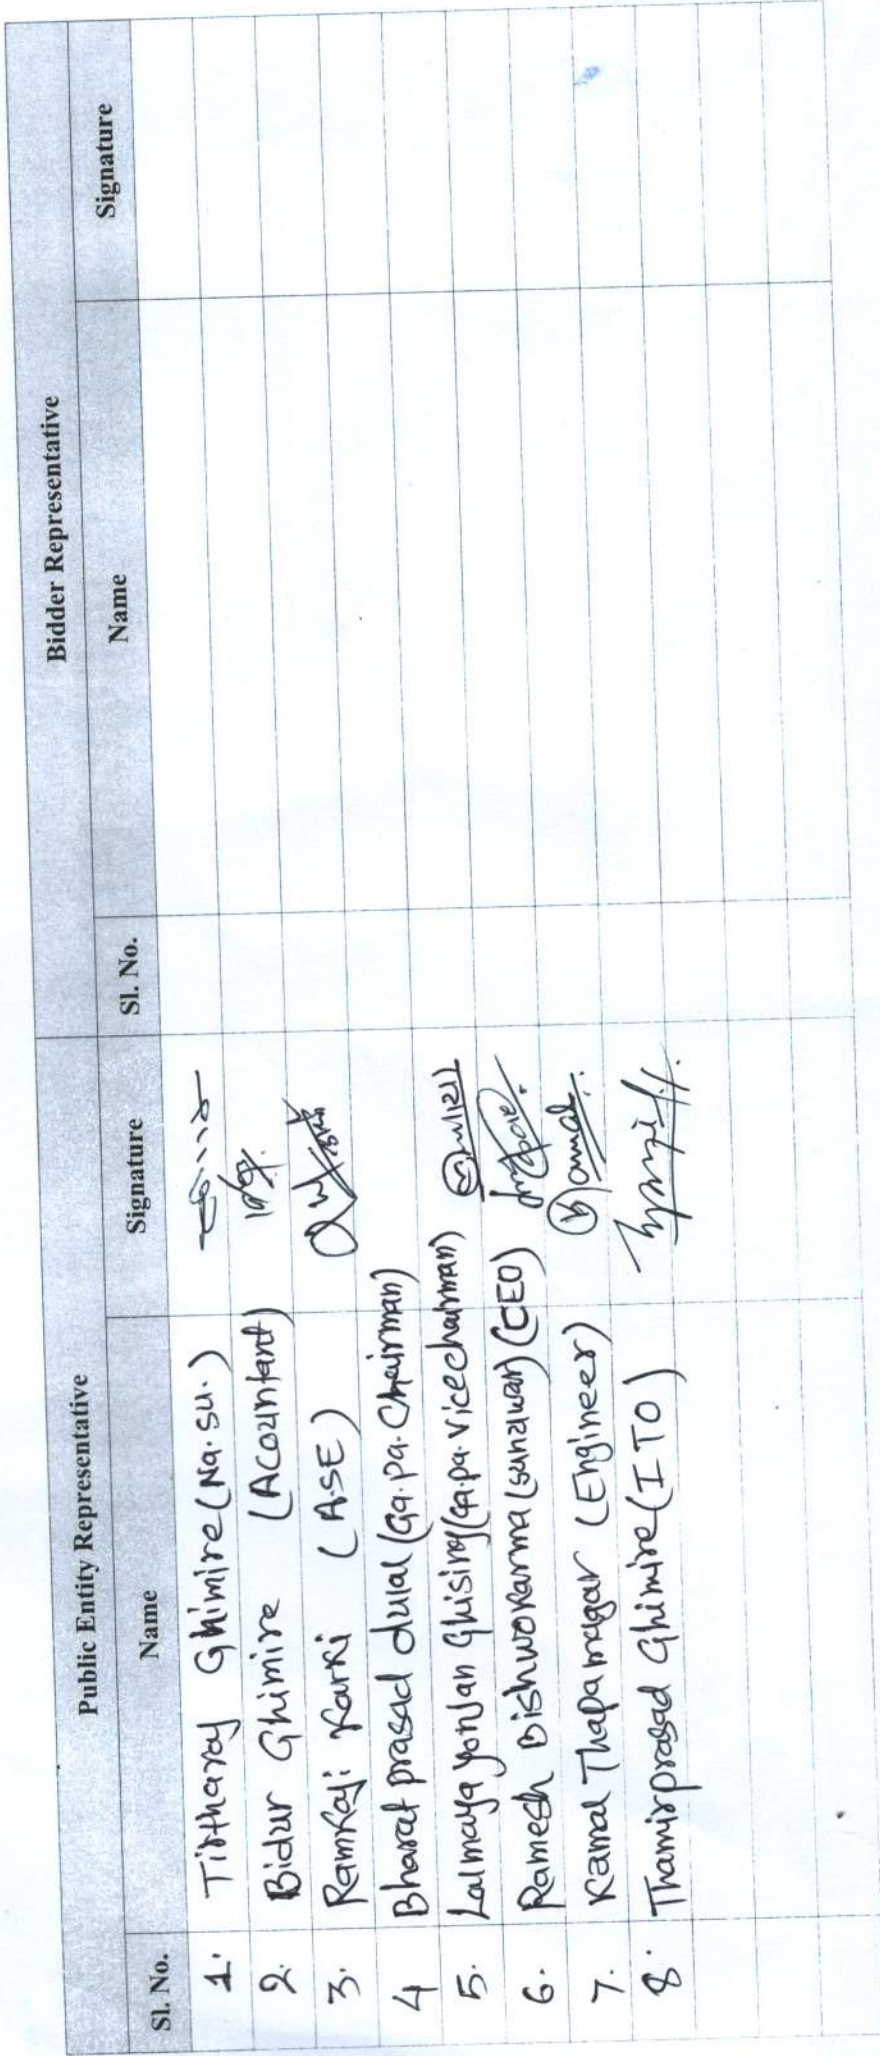 Public Entity Representative Bidder Representative
Sl. No. Name Signature Sl. No. Name Signature
1. Tirtharaj Ghimire (Na.su.)
2. Bidur Ghimire (Acountant)
3. Ramkaji Karki (A.SE)
4 Bharat prasad dulal (Ga.pa. Chairman)
5. Lalmaya yonjan Ghising (Ga.pa. vicechairman)
6. Ramesh Bishwokarma (sunuwar) (CEO)
7. Kamal Thapamagar (Engineer)
8. Thamirprasad Ghimire (ITO)